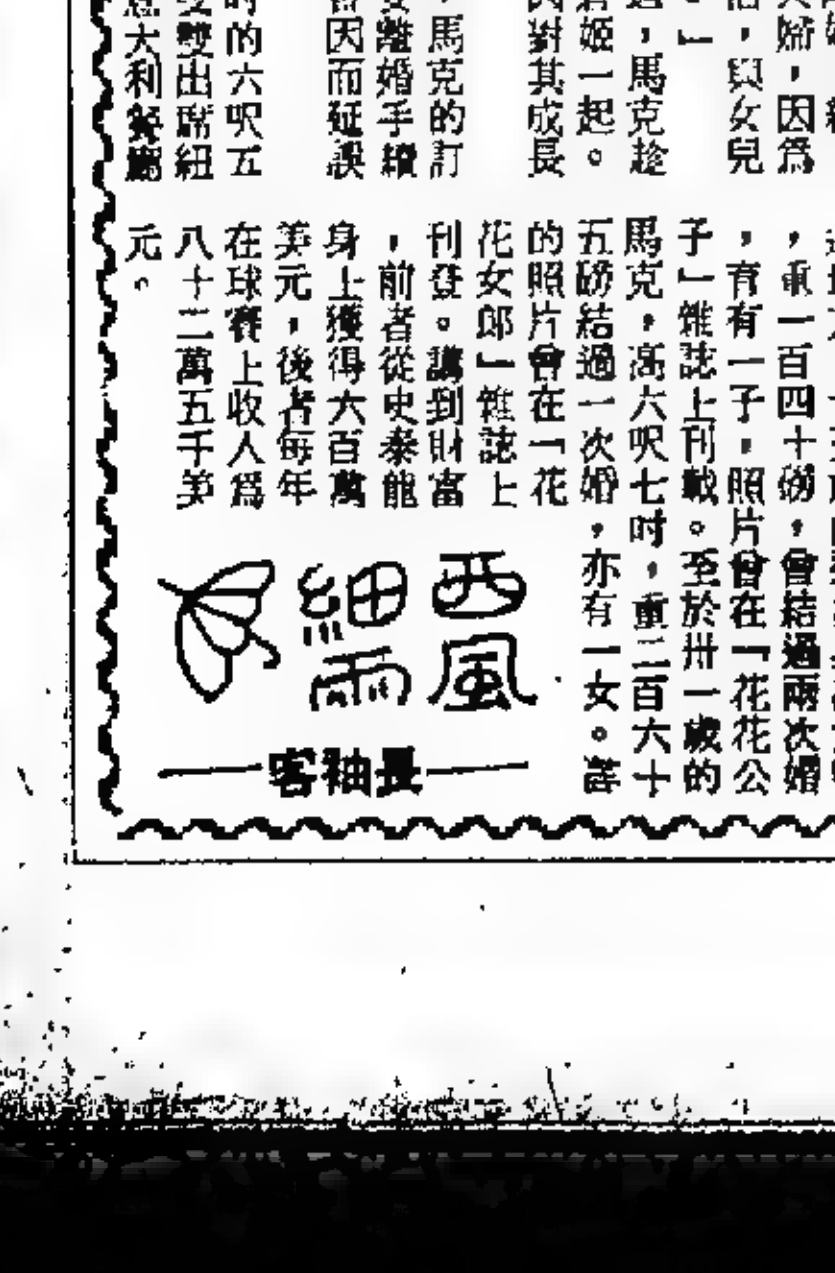 夫婦，因爲
，與女兒
。」
，馬克趁
姬一起。
對其成長
，馬克的訂
離婚手續
因而延誤
的六呎五
雙出席紐
意大利餐廳
，重一百四十磅，曾結過兩次婚
，育有一子，照片曾在「花花公
子」雜誌上刊載。至於卅一歲的
馬克，高六呎七吋，重二百六十
五磅結過一次婚，亦有一女。
的照片曾在「花
花女郎」雜誌上
刊登。講到財富
，前者從史泰龍
身上獲得六百萬
美元，後者每年
在球賽上收入爲
八十二萬五千美
元。
西風
細雨
長袖客